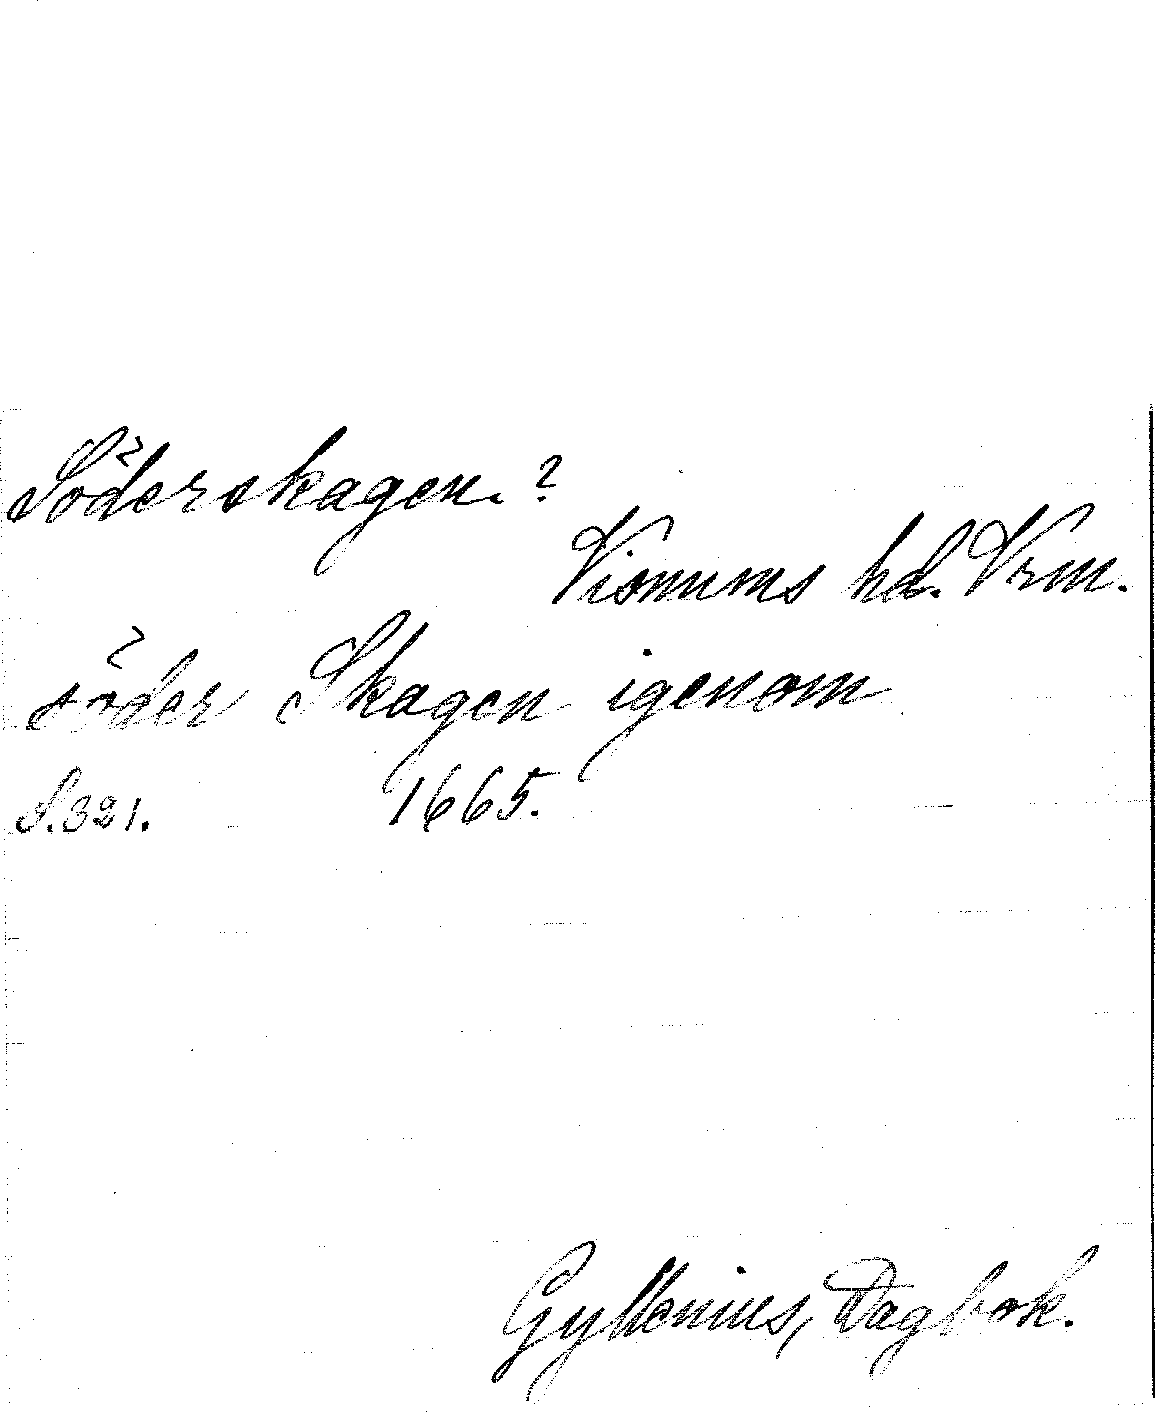 Söderskagen. ?
Visnums hd. Vrm.
söder Skagen igenom
S. 321. 1665.
Gyllenius, Dagbok.